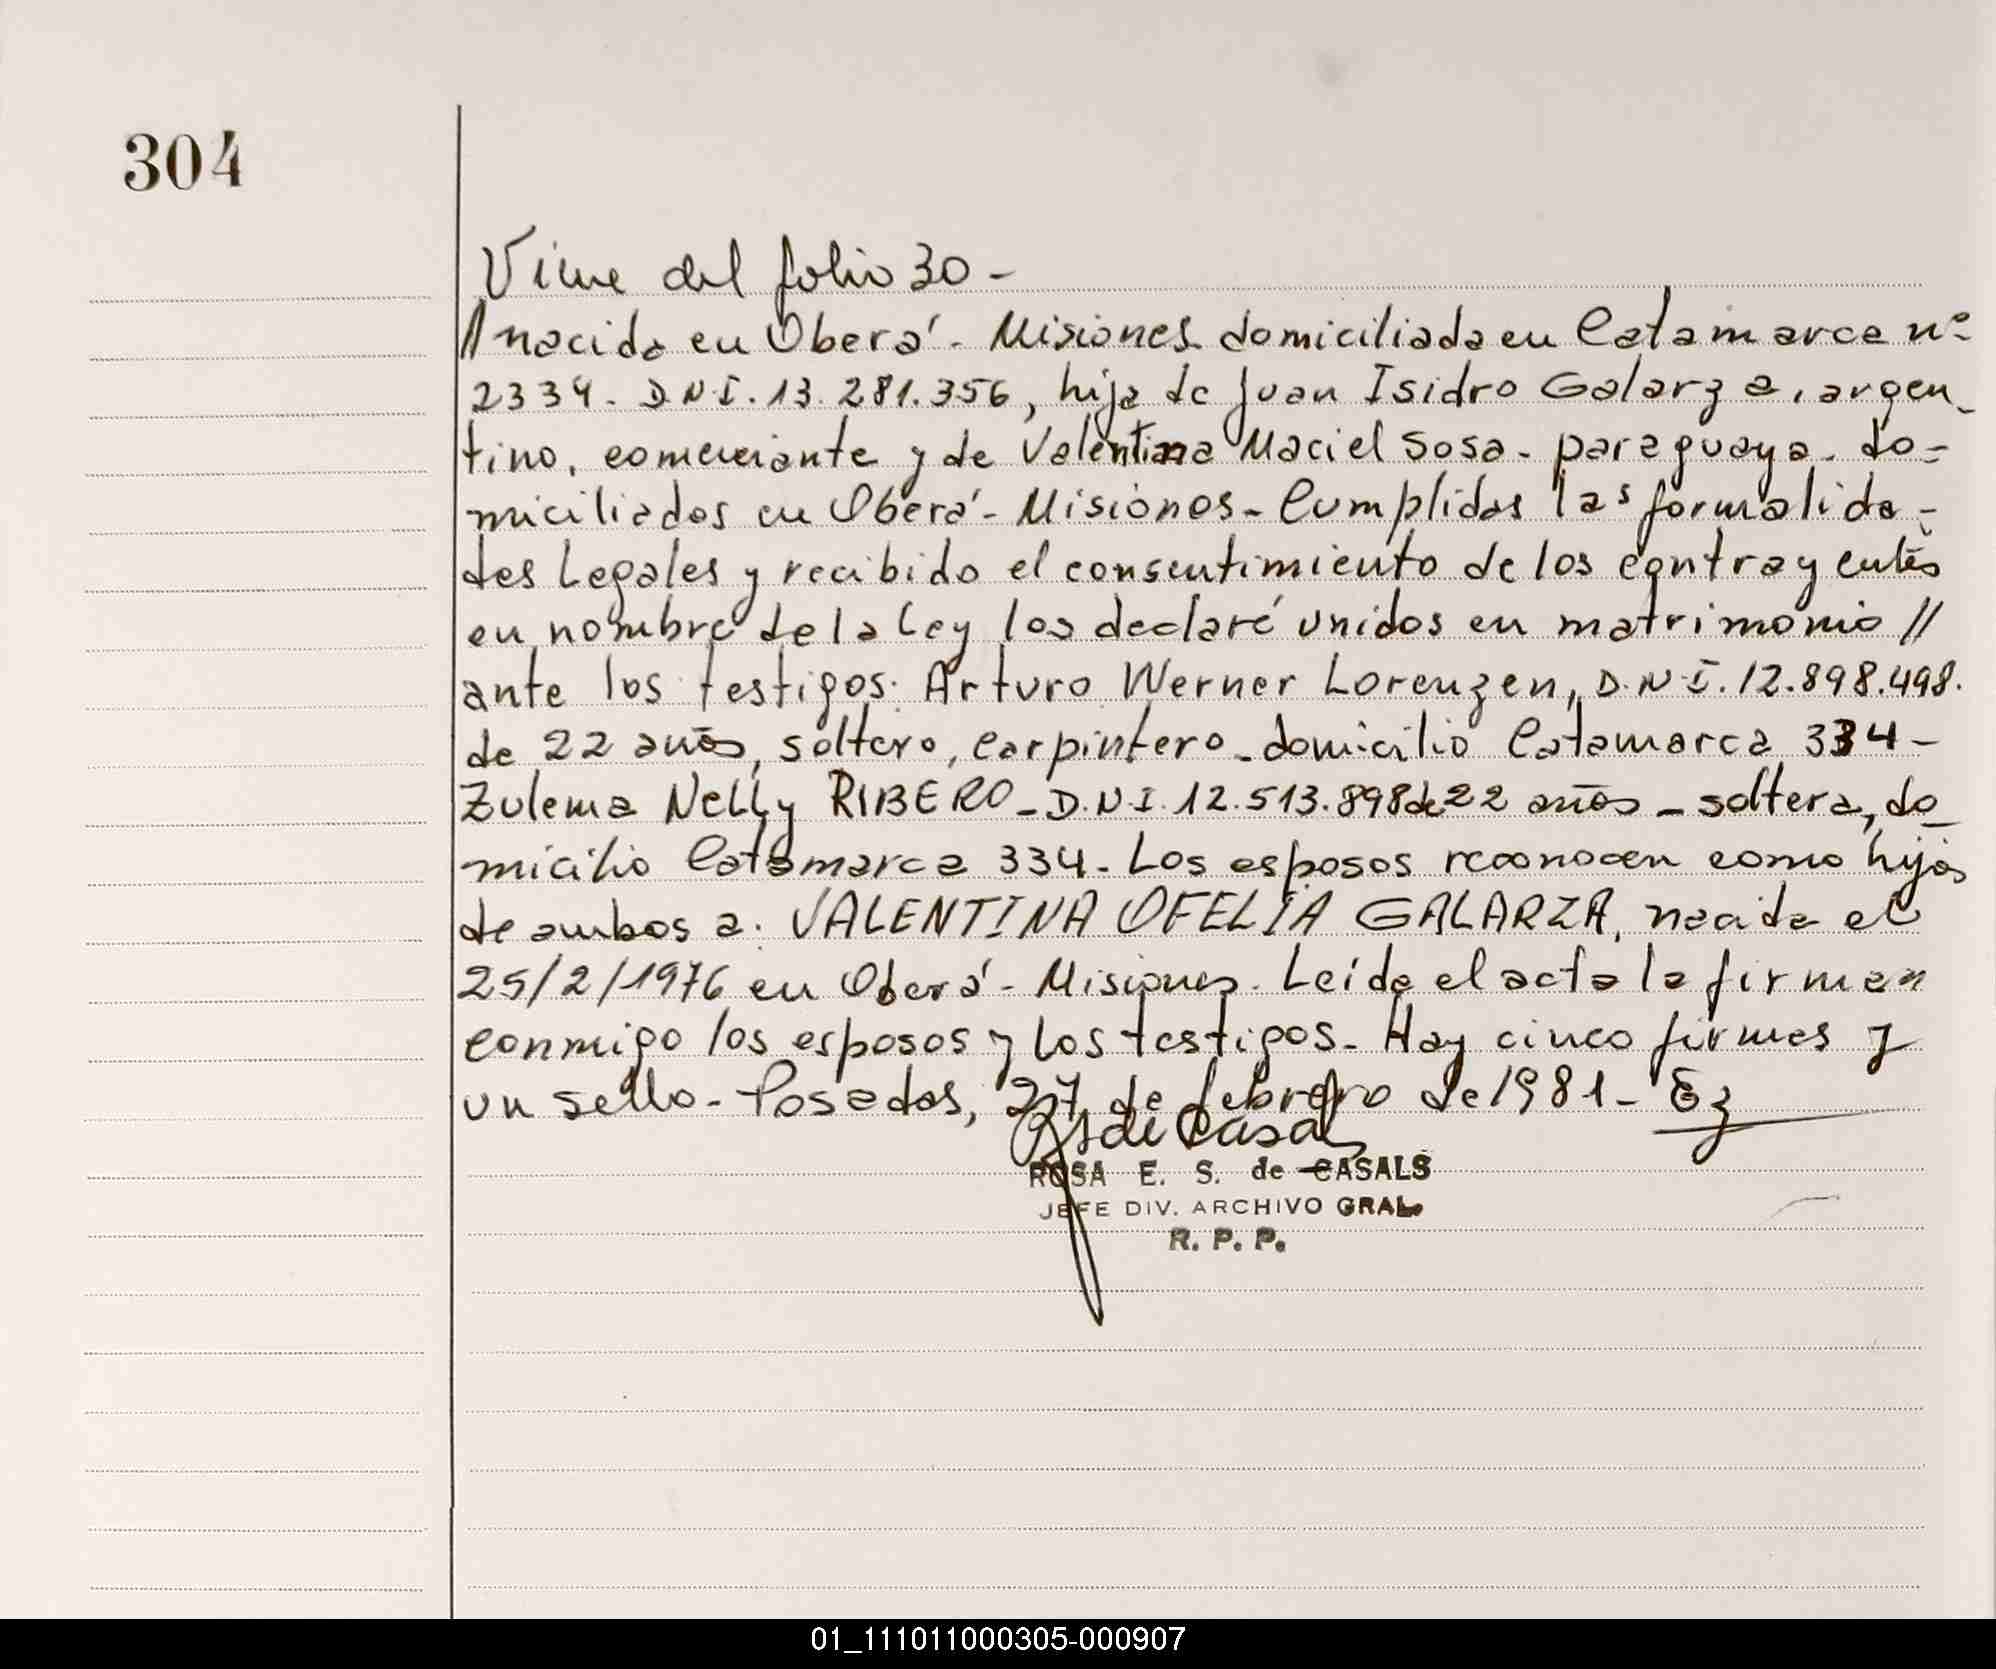 304
Viene del folio 30 -
// nacida en Oberá - Misiones domiciliada en Catamarca nº
2334 - D.N.I. 13.281.356, hija de Juan Isidro Galarza, argen-
tino, comerciante y de Valentina Maciel Sosa - paraguaya. do=
miciliados en Oberá - Misiones - Cumplidas las formalida-
des Legales y recibido el consentimiento de los contrayentes
en nombre de la Ley los declaré unidos en matrimonio //
ante los testigos: Arturo Werner Lorenzen, D.N.I. 12.898.498.
de 22 años, soltero, carpintero - domicilio Catamarca 334 -
Zulema Nelly RIBERO - D.N.I. 12.513.898 de 22 años - soltera, do_
micilio Catamarca 334 - Los esposos reconocen como hijos
de ambos a: VALENTINA OFELIA GALARZA, nacida el
25/2/1976 en Oberá - Misiones. Leída el acta la firman
conmigo los esposos y los testigos - Hay cinco firmas y
un sello - Posadas, 27 de febrero de 1981 -
ROSA E. S. de CASALS
JEFE DIV. ARCHIVO GRAL.
R. P. P.
01_111011000305-000907